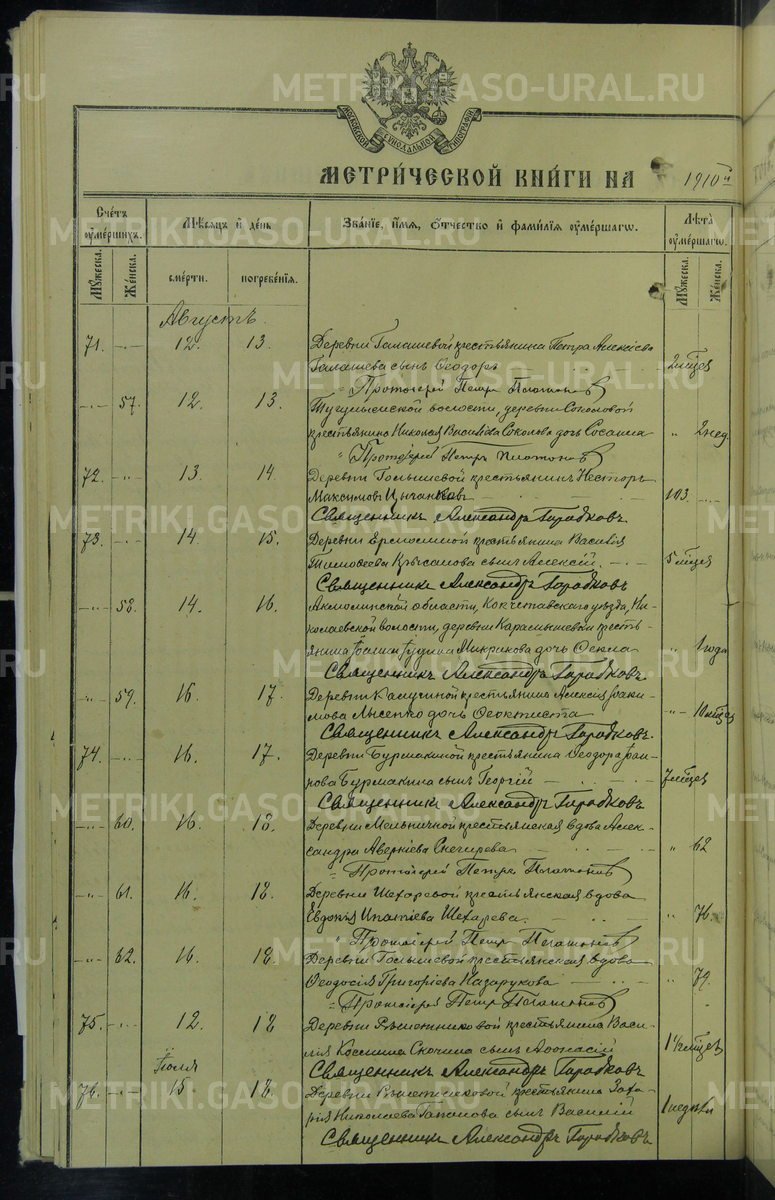 МОСКОВСКОЙ СѴНОДАЛЬНОЙ ТИПОГРАФІИ
МЕТРИ́ЧЕСКОЙ КНИ́ГИ НА 1910 г.
Счétъ ᲂу҆ме́ршихъ. Мѣ́сѧцъ и҆ де́нь Зва́нїе, и҆́мѧ, ѻ҆́тчество и҆ фами́лїѧ ᲂу҆ме́ршагѡ. Лѣ́та ᲂу҆ме́ршагѡ.
Мꙋ́жеска. Же́нска. сме́рти. погребе́нїѧ. Мꙋ́жеска. Же́нска.
Августъ.
71. -"- 12. 13. Деревни Галашевой крестьянина Петра Алексѣева
Галашева сынъ Ѳеодоръ 2 мѣсяца
Протоіерей Петръ Платоновъ
-"- 57. 12. 13. Тугулымской волости, деревни Соколовой
крестьянина Николая Васильева Соколова дочь Сосанна " 2 нед.
" Протоіерей Петръ Платоновъ
72. -"- 13. 14. Деревни Голышевой крестьянинъ Несторъ
Максимовъ 103
Священникъ Александръ Городковъ
73. -"- 14. 15. Деревни Ермолиной крестьянина Василія
Тимоѳеева Крысанова сынъ Алексій. 5 мѣсяцев
Священникъ Александръ Городковъ
-"- 58. 14. 16. Акмолинской области, Кокчетавскаго уѣзда, Ни-
колаевской волости, деревни Карамышевки кресть-
янина дочь " 1 года
Священникъ Александръ Городковъ.
-"- 59. 16. 17. Деревни крестьянина Алексія Іоаки-
мова Лысенко дочь Ѳеоктиста " 10 мѣсяцев
Священникъ Александръ Городковъ.
74. -"- 16. 17. Деревни Бурмакиной крестьянина Ѳеодора
Бурмакина сынъ Георгій 7 мѣсяцев
Священникъ Александръ Городковъ
-"- 60. 16. 18. Деревни Мельничной крестьянская вдова Алек-
сандра Аверкіева Снегирева " 62
" Протоіерей Петръ Платоновъ
-"- 61. 16. 18. Деревни Шехаревой крестьянская вдова
Евдокія Игнатіева Шехарева. " 76.
" Протоіерей Петръ Платоновъ
-"- 62. 16. 18. Деревни Голышевой крестьянская вдова
Ѳеодосія Григоріева Назарукова " 79.
" Протоіерей Петръ Платоновъ
75. -"- 12. 18 Деревни Рѣшетниковой крестьянина Васи-
лія Космина Скочина сынъ Аѳанасій 1½ мѣсяцев
Священникъ Александръ Городковъ
Іюля
76. -"- 15 18. Деревни Рѣшетниковой крестьянина Заха-
рія Николаева Гапонова сынъ Василій 1 недѣли
Священникъ Александръ Городковъ.
METRIKI.GASO-URAL.RU